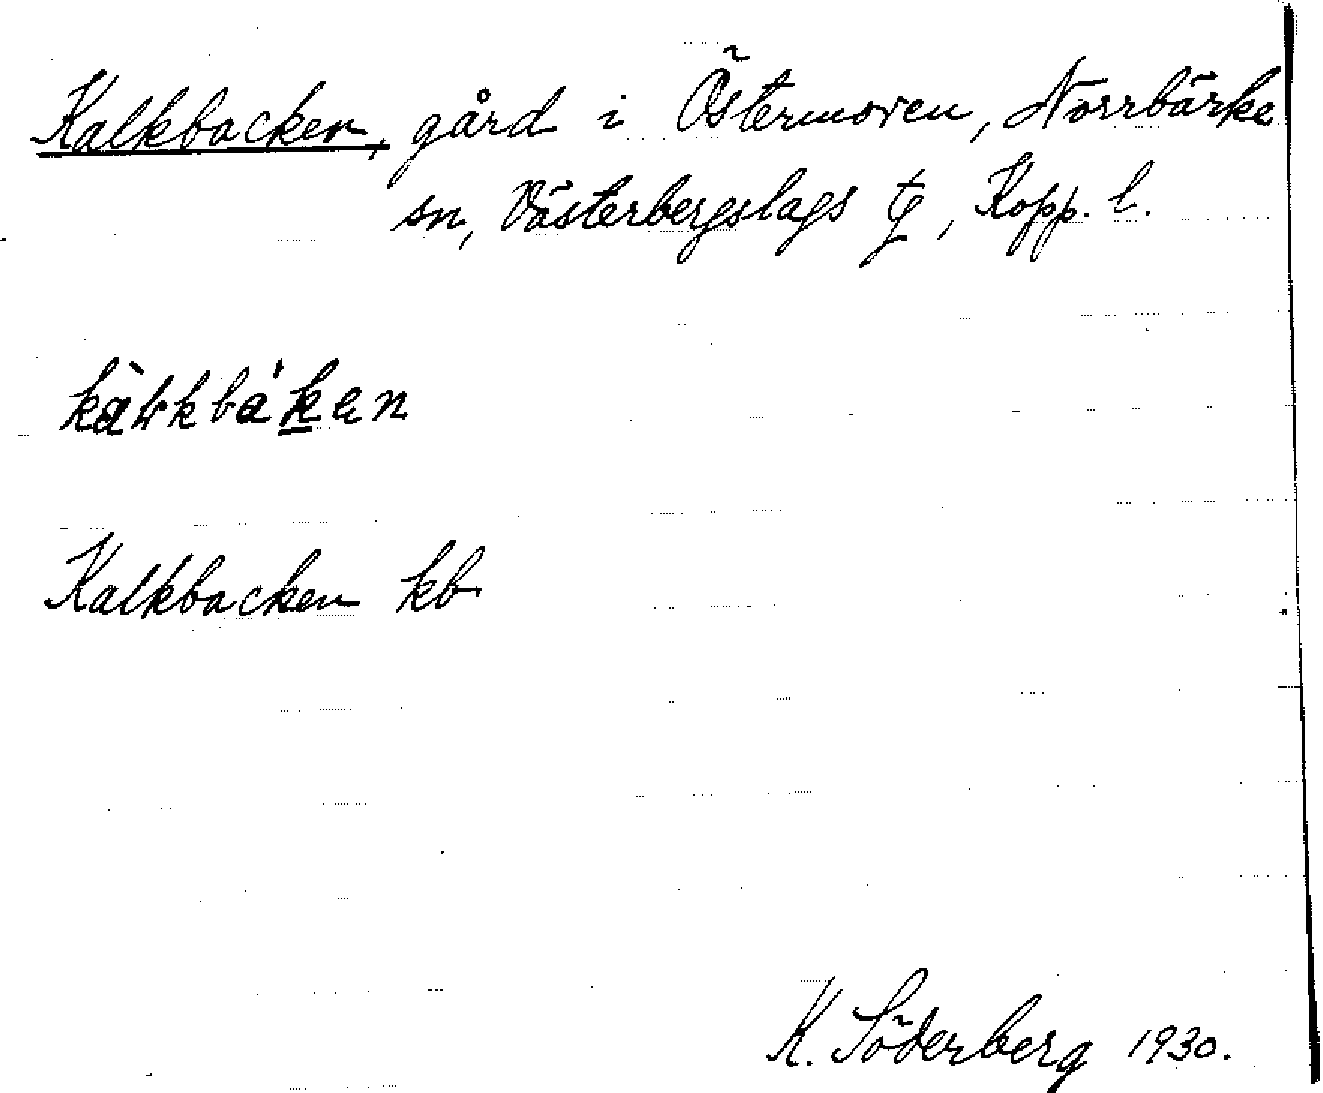 Kalkbacken, gård i Östermoren, Norrbärke
sn, Västerbergslags tg, Kopp. l.
kàłkbákan
Kalkbacken kb
K. Söderberg 1930.